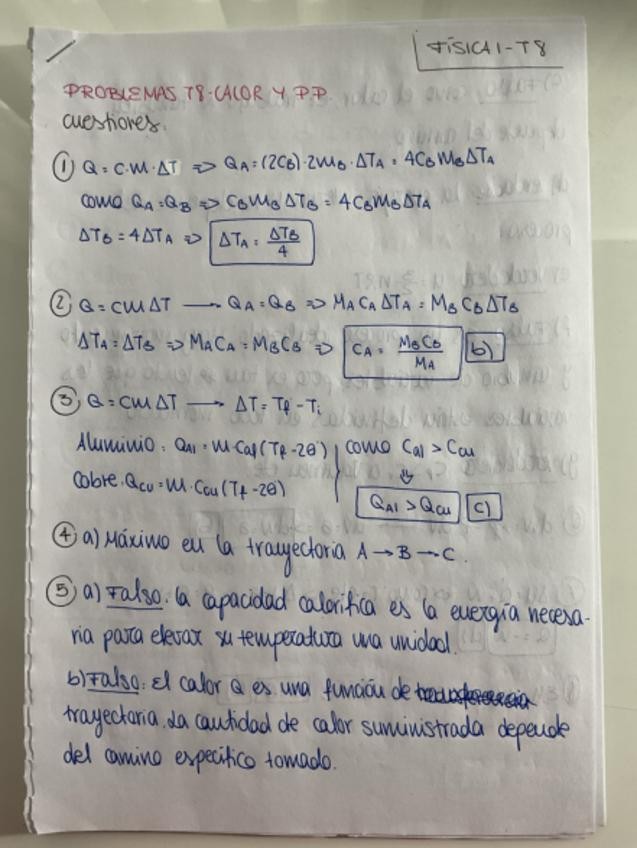 FÍSICA I - T8
PROBLEMAS T8. CALOR Y P.P.
cuestiones.
① Q = C·M·ΔT => QA = (2CB)·2MB·ΔTA = 4CBMBΔTA
como QA = QB => CBMBΔTB = 4CBMBΔTA
ΔTB = 4ΔTA => ΔTA = ΔTB/4
② Q = CMΔT → QA = QB => MACAΔTA = MBCBΔTB
ΔTA = ΔTB => MACA = MBCB => CA = MBCB/MA b)
③ Q = CMΔT → ΔT = Tf - Ti
Aluminio: QAl = M·CAl(Tf - 20) | como CAl > CCu
⇓
Cobre: QCu = M·CCu(Tf - 20)
QAl > QCu c)
④ a) Máximo en la trayectoria A → B → C.
⑤ a) Falso. la capacidad calorífica es la energía necesa-
ria para elevar su temperatura una unidad.
b) Falso: El calor Q es una función de
trayectoria. La cantidad de calor suministrada depende
del camino específico tomado.